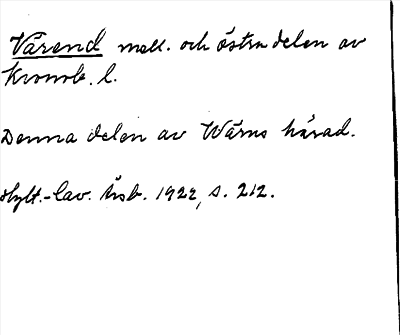 Värend mell. och östra delen av
Kronob. l.
Denna delen av Wärns härad.
Hylt.-Cav. Årsb. 1922, s. 212.